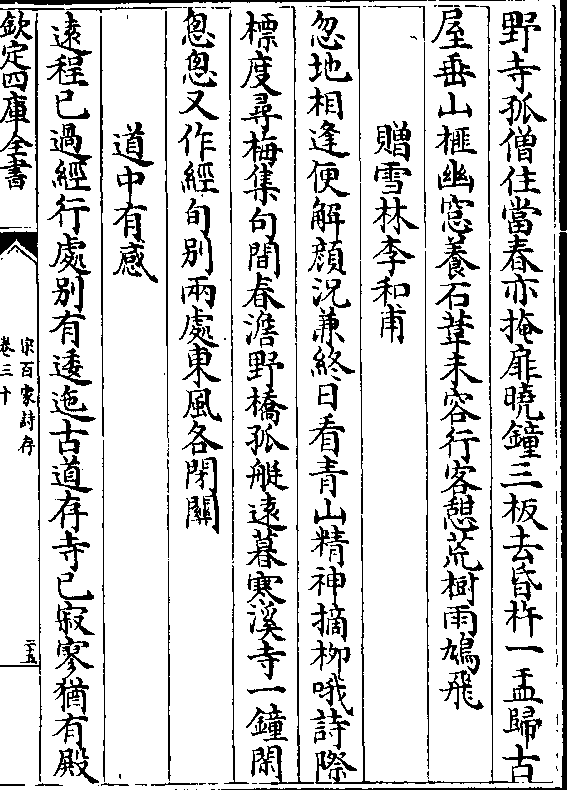 野寺孤僧住當春亦掩扉曉鐘三板去昏杵一盂歸古
屋垂山榧幽窓養石葦未容行客憇荒樹雨鳩飛
贈雪林李和甫
忽地相逢便解顔況兼終日看青山精神摘柳哦詩際
標度尋梅集句間春澹野橋孤艇遠暮寒溪寺一鐘閑
怱怱又作經旬別兩處東風各閉關
道中有感
遠程已過經行處別有逶迤古道存寺已寂寥猶有殿
欽定四庫全書
宋百家詩存
卷三十
二五